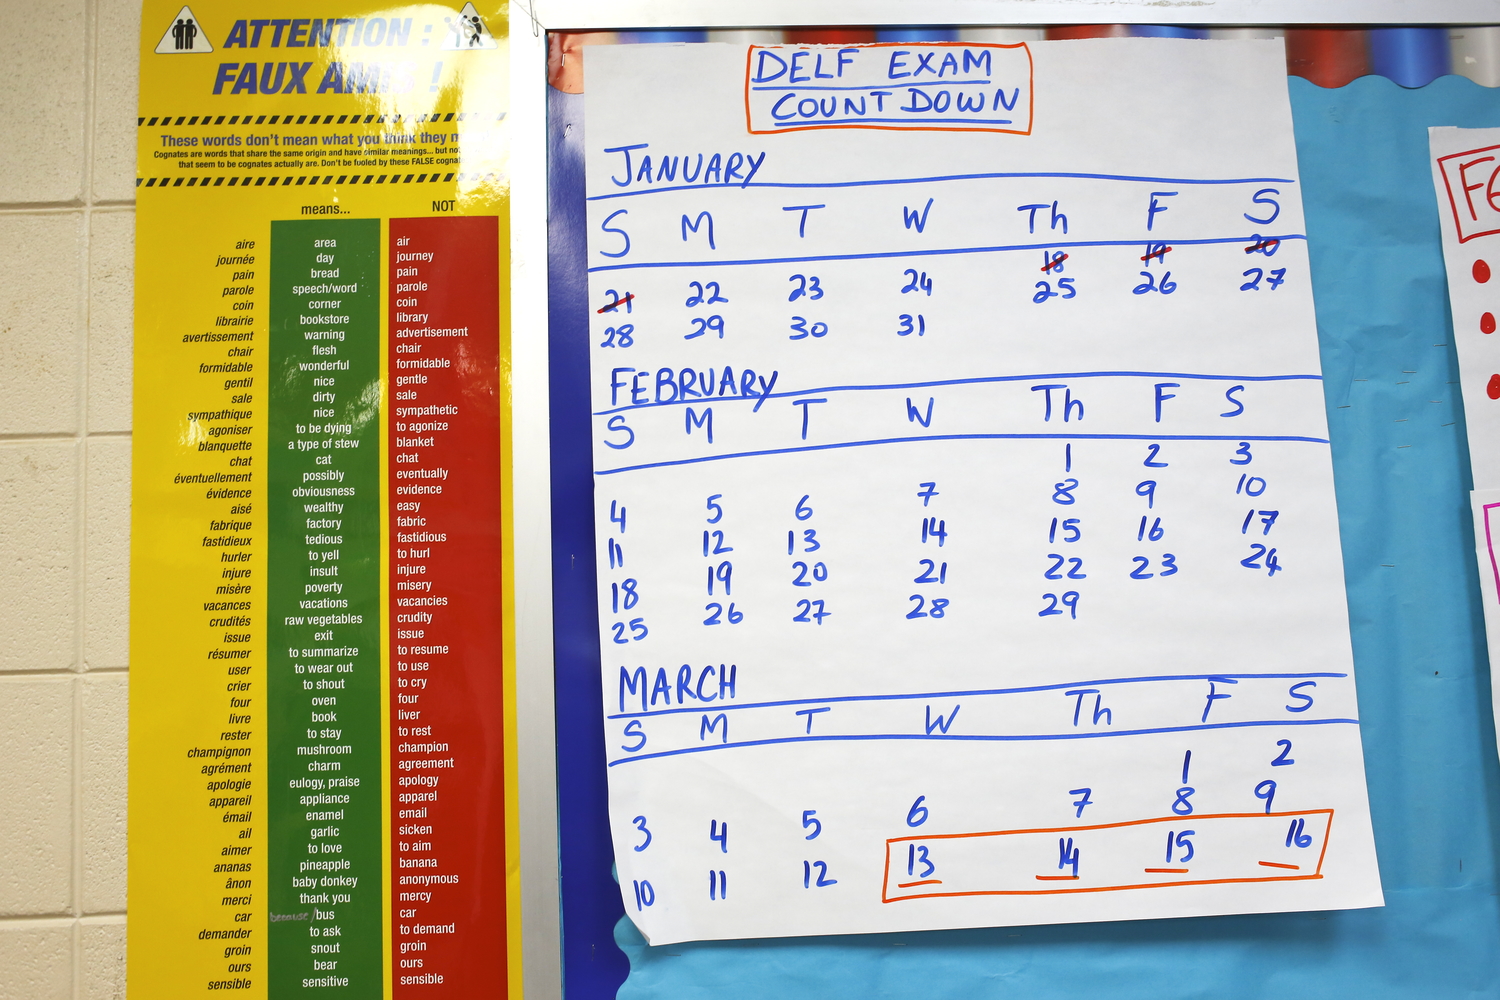 ATTENTION :
FAUX AMIS !
These words don't mean what you think they
Cognates are words that share the same origin and have similar meanings... but
that seem to be cognates actually are. Don't be fooled by these FALSE
means... NOT
aire area air
journée day journey
pain bread pain
parole speech/word parole
coin corner coin
librairie bookstore library
avertissement warning advertisement
chair flesh chair
formidable wonderful formidable
gentil nice gentle
sale dirty sale
sympathique nice sympathetic
agoniser to be dying to agonize
blanquette a type of stew blanket
chat cat chat
éventuellement possibly eventually
évidence obviousness evidence
aisé wealthy easy
fabrique factory fabric
fastidieux tedious fastidious
hurler to yell to hurl
injure insult injure
misère poverty misery
vacances vacations vacancies
crudités raw vegetables crudity
issue exit issue
résumer to summarize to resume
user to wear out to use
crier to shout to cry
four oven four
livre book liver
rester to stay to rest
champignon mushroom champion
agrément charm agreement
apologie eulogy, praise apology
appareil appliance apparel
émail enamel email
ail garlic sicken
aimer to love to aim
ananas pineapple banana
ânon baby donkey anonymous
merci thank you mercy
car because/bus car
demander to ask to demand
groin snout groin
ours bear ours
sensible sensitive sensible
DELF EXAM
COUNTDOWN
JANUARY
S M T W Th F S
18 19 20
21 22 23 24 25 26 27
28 29 30 31
FEBRUARY
S M T W Th F S
1 2 3
4 5 6 7 8 9 10
11 12 13 14 15 16 17
18 19 20 21 22 23 24
25 26 27 28 29
MARCH
S M T W Th F S
1 2
3 4 5 6 7 8 9
10 11 12 13 14 15 16